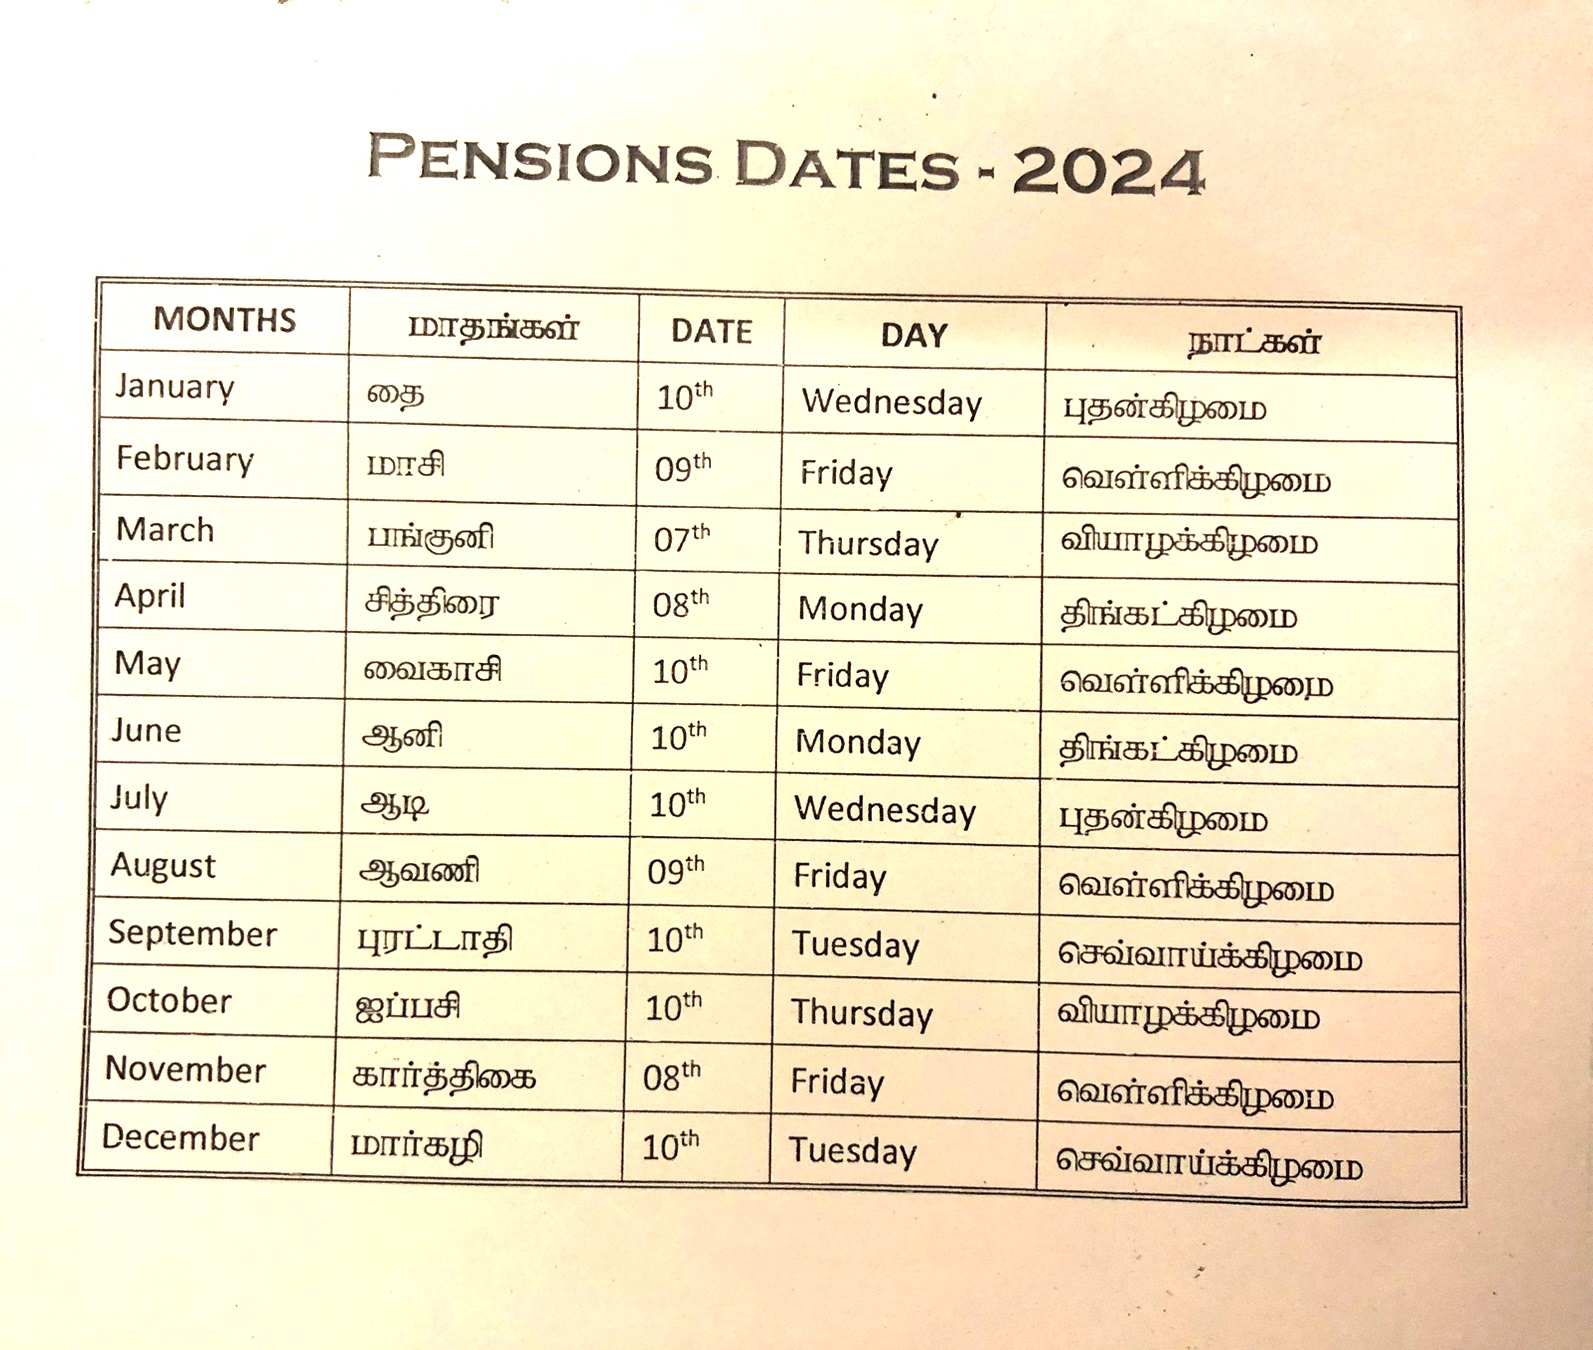 PENSIONS DATES - 2024
MONTHS மாதங்கள் DATE DAY நாட்கள்
January தை 10th Wednesday புதன்கிழமை
February மாசி 09th Friday வெள்ளிக்கிழமை
March பங்குனி 07th Thursday வியாழக்கிழமை
April சித்திரை 08th Monday திங்கட்கிழமை
May வைகாசி 10th Friday வெள்ளிக்கிழமை
June ஆனி 10th Monday திங்கட்கிழமை
July ஆடி 10th Wednesday புதன்கிழமை
August ஆவணி 09th Friday வெள்ளிக்கிழமை
September புரட்டாதி 10th Tuesday செவ்வாய்க்கிழமை
October ஐப்பசி 10th Thursday வியாழக்கிழமை
November கார்த்திகை 08th Friday வெள்ளிக்கிழமை
December மார்கழி 10th Tuesday செவ்வாய்க்கிழமை